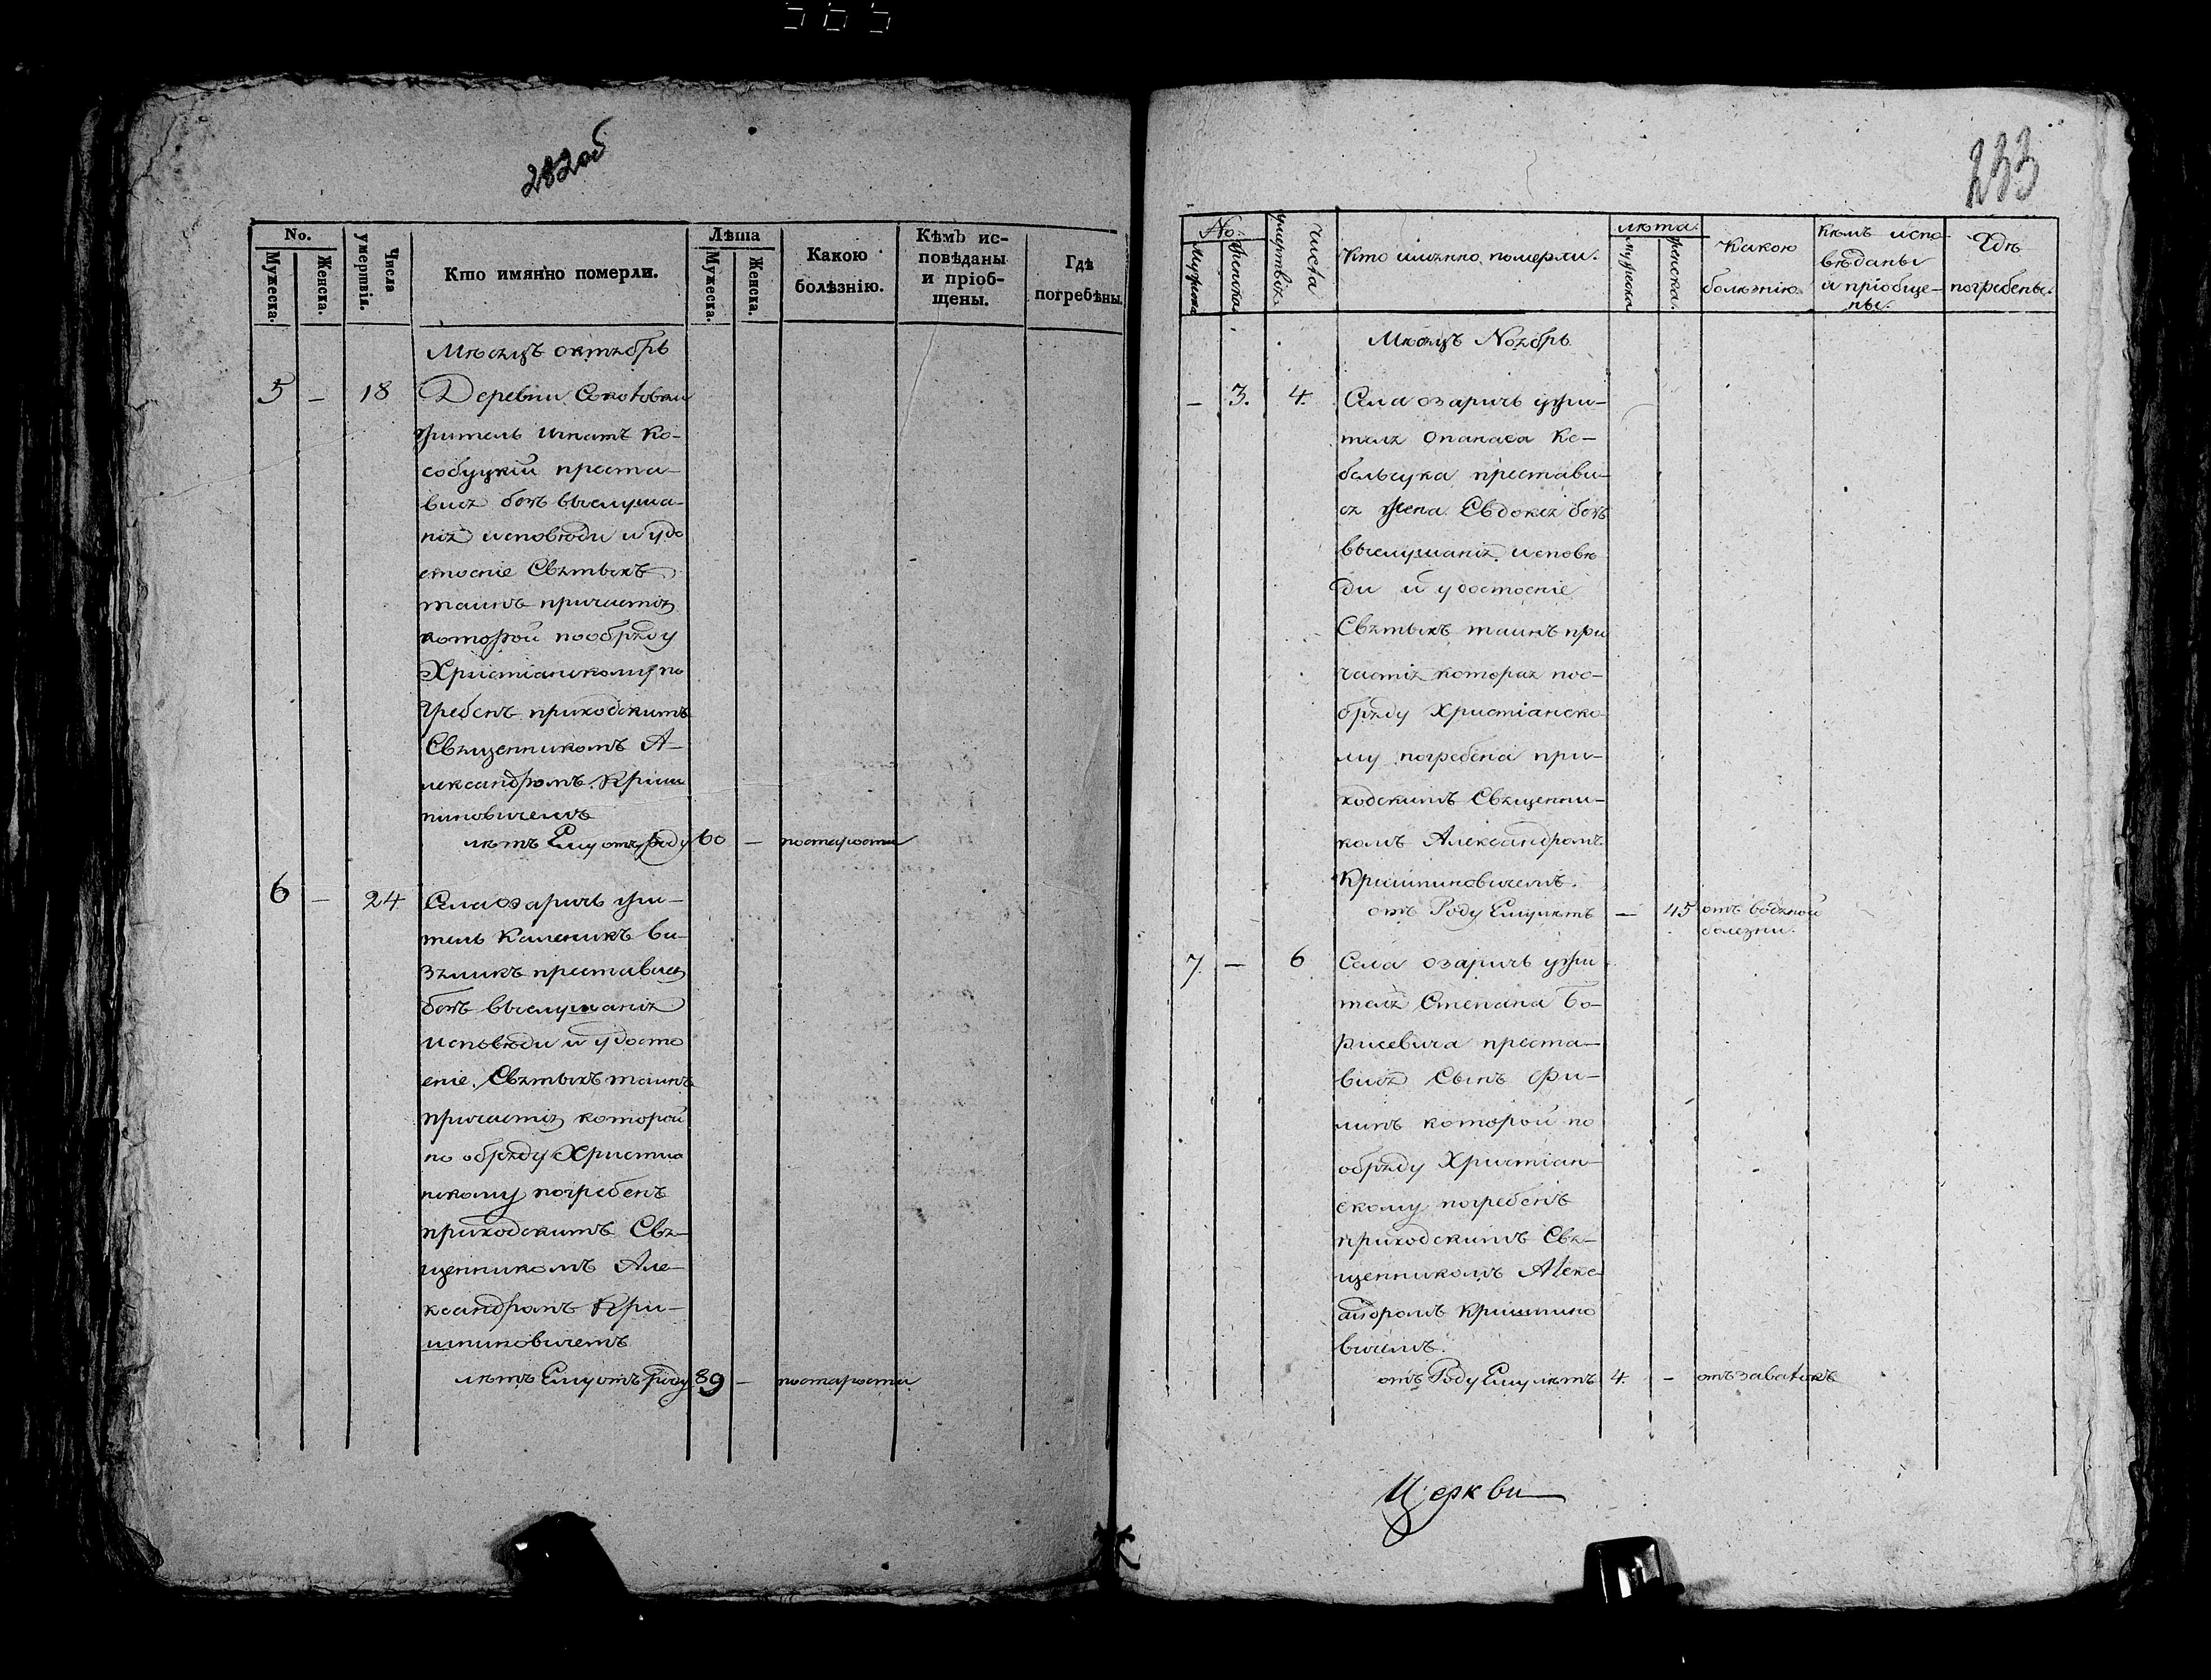 282 об
No.
Мужеска.
Женска.
Числа умертвія.
Кто имянно померли.
Лѣта
Мужеска.
Женска.
Какою болѣзнію.
Кѣмъ исповѣданы и пріобщены.
Гдѣ погребѣны.
Мѣсяцъ октябрь
5 — 18 Деревни
житель Игнатъ Ко-
собуцкій преста-
вися безъ выслуша-
нія исповѣди и удо
стоеніе Святыхъ
таинъ причастія
которой пообряду
Христіанкому по
гребенъ приходскимъ
Священникомъ А-
лександромъ Криш
пиновичемъ
лѣтъ Ему отъ роду 60 — постарости
6 — 24 Села озаричь жи-
тель Каленикъ Ви-
зникъ преставися
безъ выслушанія
исповѣди и удосто
еніе Святыхъ таинъ
причастія которой
по обряду Христиа
нкому погребенъ
приходскимъ Свя-
щенникомъ Але-
ксандромъ Кри-
шпиновичемъ
лѣтъ Ему отъ роду 89 — постарости
233
No.
Мужеска
Женска
Числа умертвія
Кто имянно померли.
лѣта.
мужеска
женска.
Какою болѣзнію.
Кѣмъ исповѣданы и пріобщены.
Гдѣ погребены.
Мѣсяцъ Ноябрь
— 3. 4. Села озаричь ужи-
теля Опанаса Ко-
бельчука престави-
ся жена Евдокія безъ
выслушанія исповѣ
ди и удостоеніе
Святыхъ таинъ при
частія которая поо-
бряду Христіанско
му погребена при-
ходскимъ Священни-
комъ Александромъ
Кришпиновичемъ.
отъ Роду Ему лѣтъ — 45 отъ водяной
болезни.
7. — 6 Села озаричь ужи
теля Степана Бо-
рисевича преста-
вися Сынъ Фи-
липъ которой по
обряду Христіан-
скому погребенъ
приходскимъ Свя-
щенникомъ Алекс
андромъ Кришпино
вичемъ.
отъ Роду Ему лѣтъ 4. — отъ завалокъ
Церкви